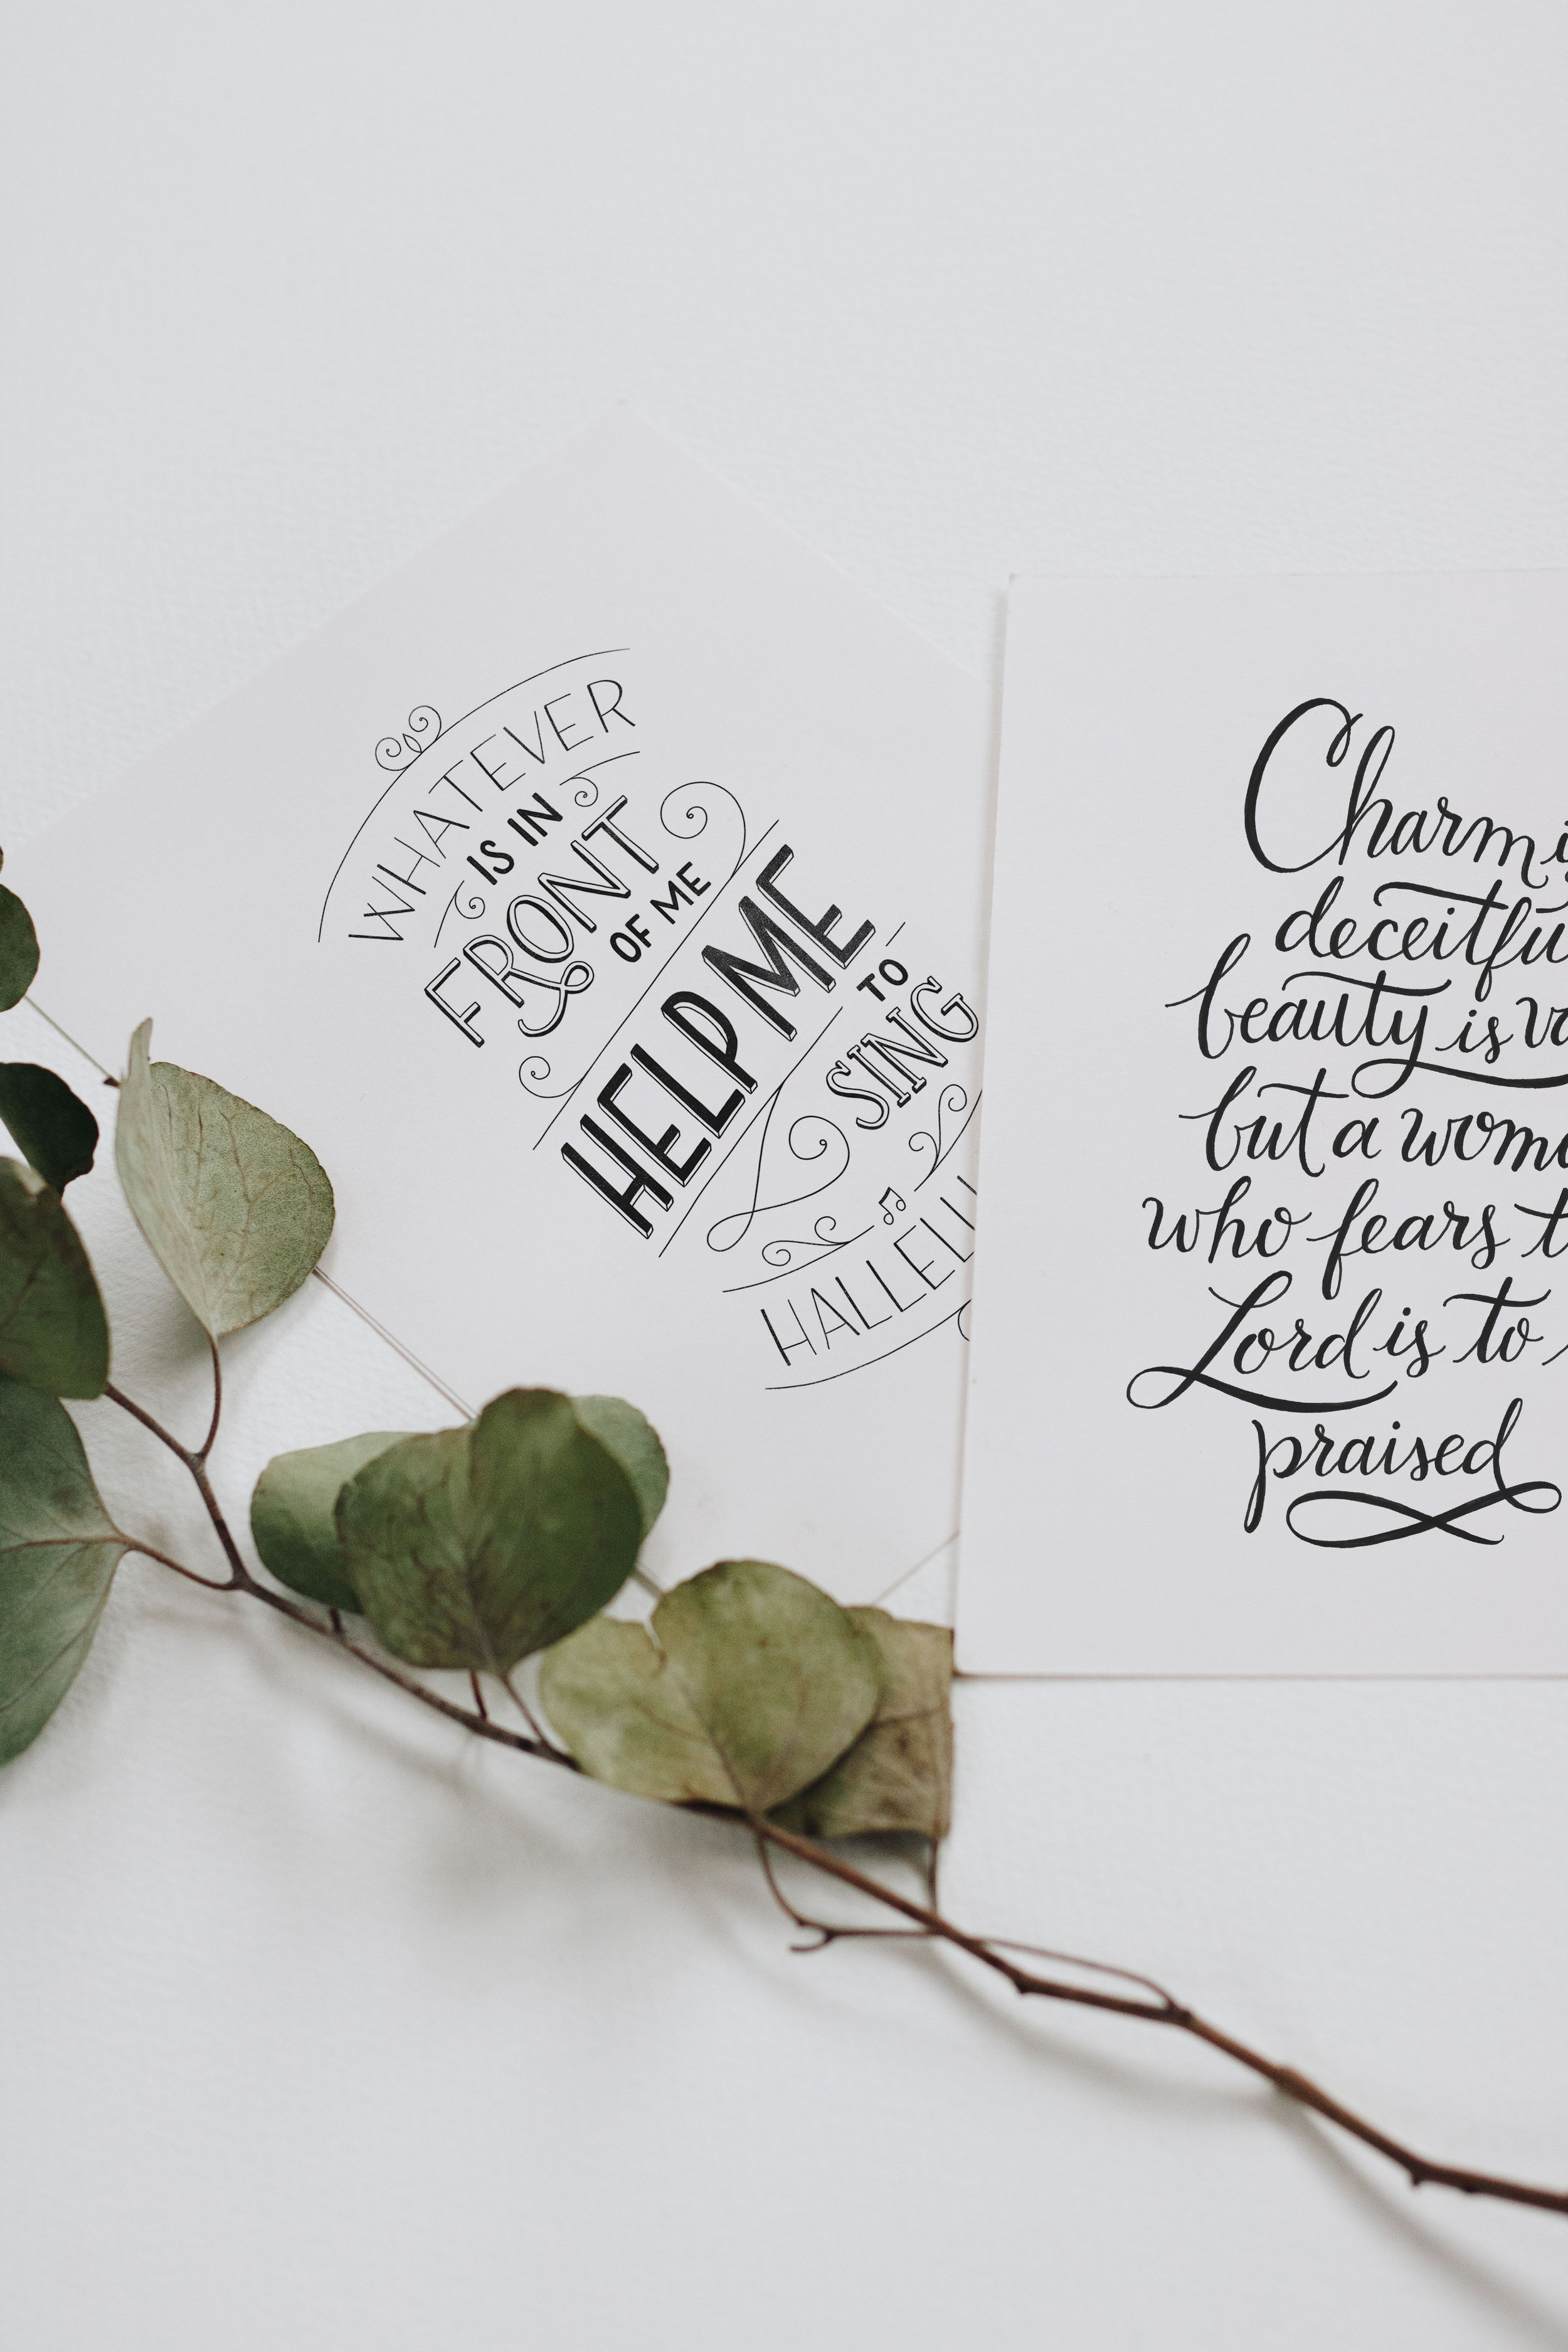 WHATEVER
IS IN
FRONT
OF ME
HELP ME
TO
SING
HALLELU
Charmi
deceitfu
beauty is va
but a woma
who fears t
Lord is to
praised